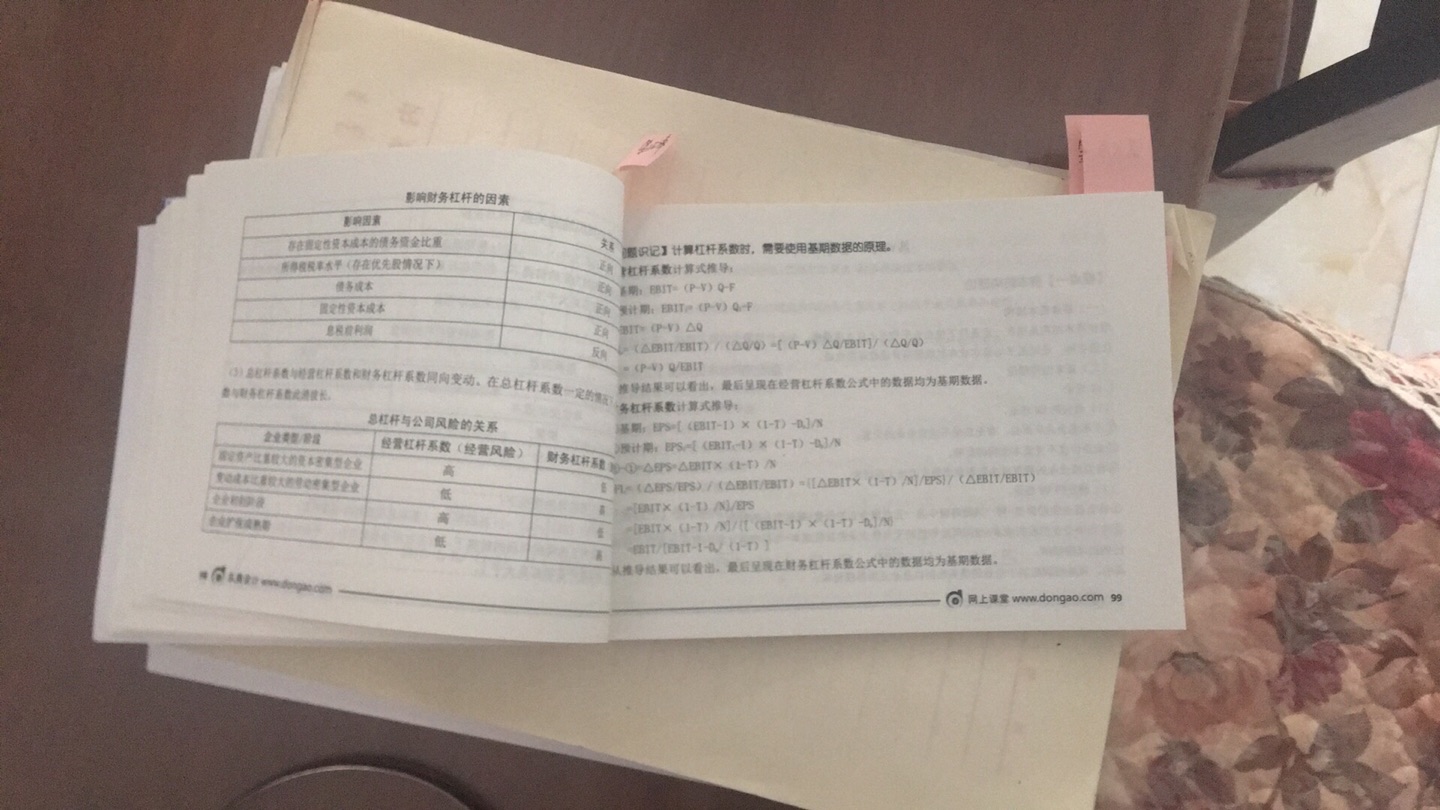 影响财务杠杆的因素
影响因素
关系
存在固定性资本成本的债务资金比重
正向
所得税税率水平（存在优先股情况下）
正向
债务成本
正向
固定性资本成本
正向
息税前利润
反向
（3）总杠杆系数与经营杠杆系数和财务杠杆系数同向变动。在总杠杆系数一定的情况下
数与财务杠杆系数此消彼长。
总杠杆与公司风险的关系
企业类型/阶段
经营杠杆系数（经营风险）
财务杠杆系数
固定资产比重较大的资本密集型企业
高
劳动成本比重较大的劳动密集型企业
低
高
企业初创阶段
高
低
企业扩张成熟期
低
高
98 www.dongao.com
题识记】计算杠杆系数时，需要使用基期数据的原理。
杠杆系数计算式推导：
基期：EBIT=（P-V）Q-F
预计期：EBIT₁=（P-V）Q₁-F
EBIT=（P-V）△Q
=（△EBIT/EBIT）/（△Q/Q）=[（P-V）△Q/EBIT]/（△Q/Q）
=（P-V）Q/EBIT
推导结果可以看出，最后呈现在经营杠杆系数公式中的数据均为基期数据。
务杠杆系数计算式推导：
基期：EPS=[（EBIT-I）×（1-T）-Dₚ]/N
预计期：EPS₁=[（EBIT₁-I）×（1-T）-Dₚ]/N
-①=△EPS=△EBIT×（1-T）/N
FL=（△EPS/EPS）/（△EBIT/EBIT）={[△EBIT×（1-T）/N]/EPS}/（△EBIT/EBIT）
=[EBIT×（1-T）/N]/EPS
=[EBIT×（1-T）/N]/{[（EBIT-I）×（1-T）-Dₚ]/N}
=EBIT/[EBIT-I-Dₚ/（1-T）]
从推导结果可以看出，最后呈现在财务杠杆系数公式中的数据均为基期数据。
网上课堂 www.dongao.com 99